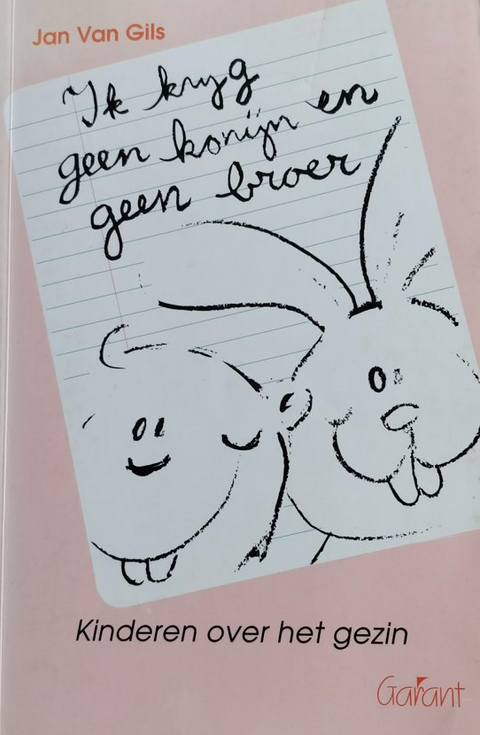 Jan Van Gils
Ik kryg
geen konijn en
geen broer
Kinderen over het gezin
Garant